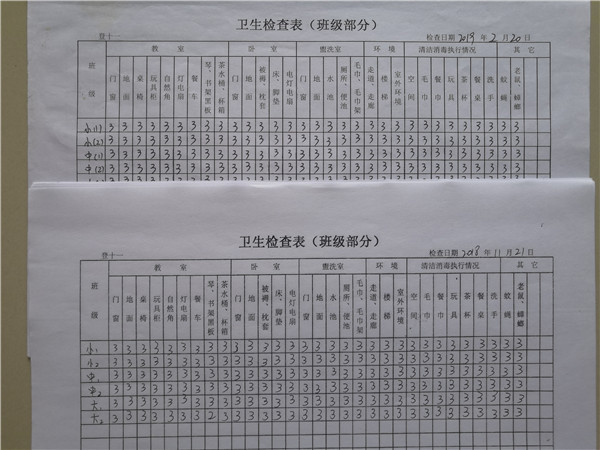 卫生检查表（班级部分）
登十一
检查日期2019 年 2 月 20 日
班级 教室 卧室 盥洗室 环境 清洁消毒执行情况 其它
门窗 地面 桌椅 玩具柜 自然角 灯电扇 餐车 琴、书架黑板 茶水桶、杯箱 门窗 地面 被褥、枕套 床、脚垫 电灯电扇 门窗 地面 水池 厕所、便池 毛巾、毛巾架 走道、走廊 楼梯 室外环境 空间 毛巾 玩具 茶杯 餐桌 洗手 蚊蝇 老鼠、蟑螂
小(1) 3 3 3 3 3 3 3 3 3 3 3 3 3 3 3 3 3 3 3 3 3 3 3 3 3 3 3 3 3 3
小(2) 3 3 3 3 3 3 3 3 3 3 3 3 3 3 3 3 3 3 3 3 3 3 3 3 3 3 3 3 3 3
中(1) 3 3 3 3 3 3 3 3 3 3 3 3 3 3 3 3 3 3 3 3 3 3 3 3 3 3 3 3 3 3
中(2) 3 3 3 3 3 3 3 3 3 3 3 3 3 3 3 3 3 3 3 3 3 3 3 3 3 3 3 3 3 3
卫生检查表（班级部分）
登十一
检查日期 2018 年 11 月 21 日
班级 教室 卧室 盥洗室 环境 清洁消毒执行情况 其它
门窗 地面 桌椅 玩具柜 自然角 灯电扇 餐车 琴、书架黑板 茶水桶、杯箱 门窗 地面 被褥、枕套 床、脚垫 电灯电扇 门窗 地面 水池 厕所、便池 毛巾、毛巾架 走道、走廊 楼梯 室外环境 空间 毛巾 玩具 茶杯 餐桌 洗手 蚊蝇 老鼠、蟑螂
小1 3 3 3 3 3 3 3 3 3 3 3 3 3 3 3 3 3 3 3 3 3 3 3 3 3 3 3 3 3 3
小2 3 3 3 3 3 3 3 3 3 3 3 3 3 3 3 3 3 3 3 3 3 3 3 3 3 3 3 3 3 3
中1 3 3 3 3 3 3 3 3 3 3 3 3 3 3 3 3 3 3 3 3 3 3 3 3 3 3 3 3 3 3
中2 3 3 3 3 3 3 3 3 3 3 3 3 3 3 3 3 3 3 3 3 3 3 3 3 3 3 3 3 3 3
大1 3 3 3 3 3 3 3 3 3 3 3 3 3 3 3 3 3 3 3 3 3 3 3 3 3 3 3 3 3 3
大2 3 3 3 3 3 3 3 2 3 3 3 3 3 3 3 3 3 3 3 3 3 3 3 3 3 3 3 3 3 3